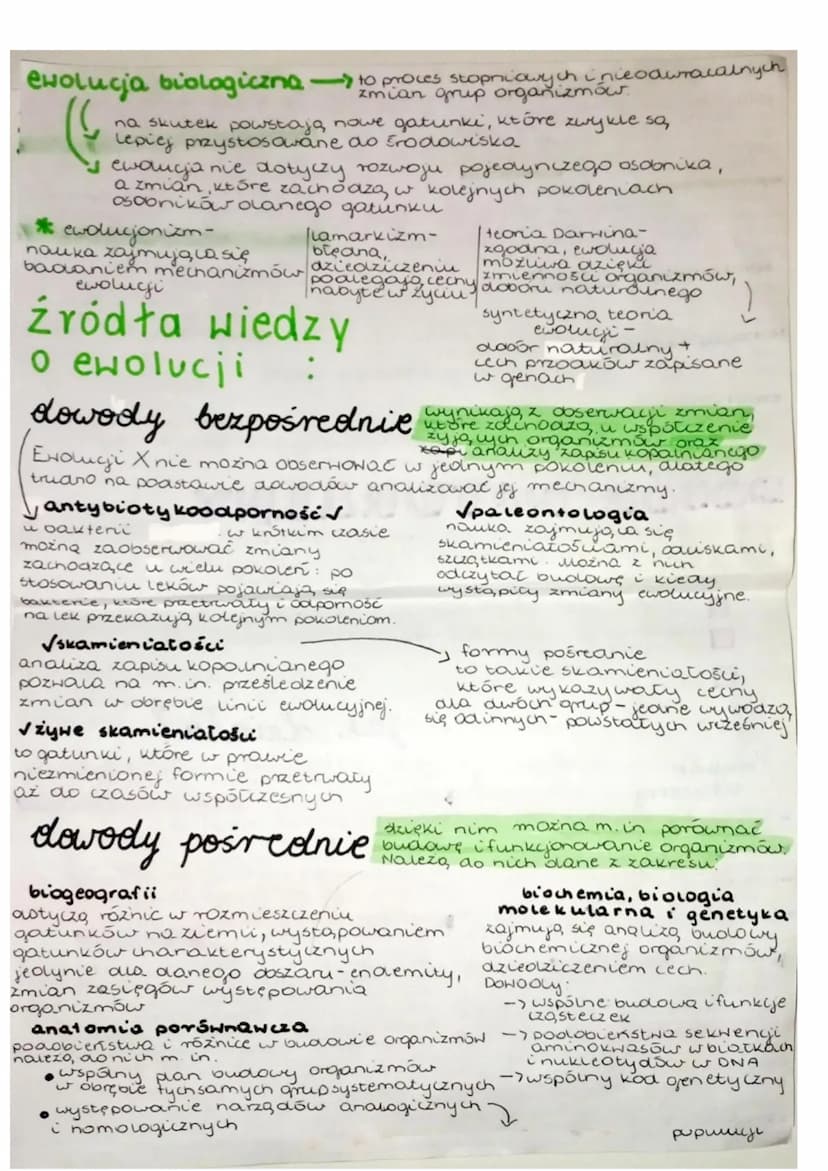 ewolucja biologiczna → to proces stopniowych i nieodwracalnych
zmian grup organizmów.
na skutek powstają nowe gatunki, które zwykle są
lepiej przystosowane do środowiska
ewolucja nie dotyczy rozwoju pojedynczego osobnika,
a zmian, które zachodzą w kolejnych pokoleniach
osobników danego gatunku
* ewolucjonizm-
nauka zajmująca się
badaniem mechanizmów
ewolucji
lamarkizm-
błędna,
dziedziczeniu
podlegają cechy
nabyte w życiu
teoria Darwina-
zgodna, ewolucja
możliwa dzięki
zmienności organizmów,
doboru naturalnego
syntetyczna teoria
ewolucji-
dobór naturalny +
cech przodków zapisane
w genach
źródła wiedzy
o ewolucji :
dowody bezpośrednie
wynikają z obserwacji zmian,
które zachodzą u współcześnie
żyjących organizmów oraz
zapi analizy zapisu kopalnianego
Ewolucji X nie można obserwować w jednym pokoleniu, dlatego
trudno na podstawie dowodów analizować jej mechanizmy.
antybiotykoodporność ✓
u bakterii w krótkim czasie
można zaobserwować zmiany
zachodzące u wielu pokoleń: po
stosowaniu leków pojawiają się
bakterie, które przetrwały i odporność
na lek przekazują kolejnym pokoleniom.
✓paleontologia
nauka zajmująca się
skamieniałościami, odciskami,
szczątkami. można z nich
odczytać budowę i kiedy
wystąpiły zmiany ewolucyjne.
✓skamieniałości
analiza zapisu kopalnianego
pozwala na m.in. prześledzenie
zmian w obrębie linii ewolucyjnej.
formy pośrednie
to takie skamieniałości,
które wykazywały cechy
dla dwóch grup - jedne wywodzą
się od innych - powstałych wcześniej
✓żywe skamieniałości
to gatunki, które w prawie
niezmienionej formie przetrwały
aż do czasów współczesnych
dowody pośrednie
dzięki nim można m.in porównać
budowę i funkcjonowanie organizmów.
Należą do nich dane z zakresu:
biogeografii
dotyczą różnic w rozmieszczeniu
gatunków na ziemi, występowaniem
gatunków charakterystycznych
jedynie dla danego obszaru-endemity,
zmian zasięgów występowania
organizmów
anatomia porównawcza
podobieństwa i różnice w budowie organizmów
należą do nich m.in.
• wspólny plan budowy organizmów
w obrębie tych samych grup systematycznych
• występowanie narządów analogicznych
i homologicznych
biochemia, biologia
molekularna i genetyka
zajmują się analizą budowy
biochemicznej organizmów,
dziedziczeniem cech.
Dowody:
→ wspólne budowa i funkcje
cząsteczek
→ podobieństwa sekwencji
aminokwasów w białkach
i nukleotydów w DNA
→ wspólny kod genetyczny